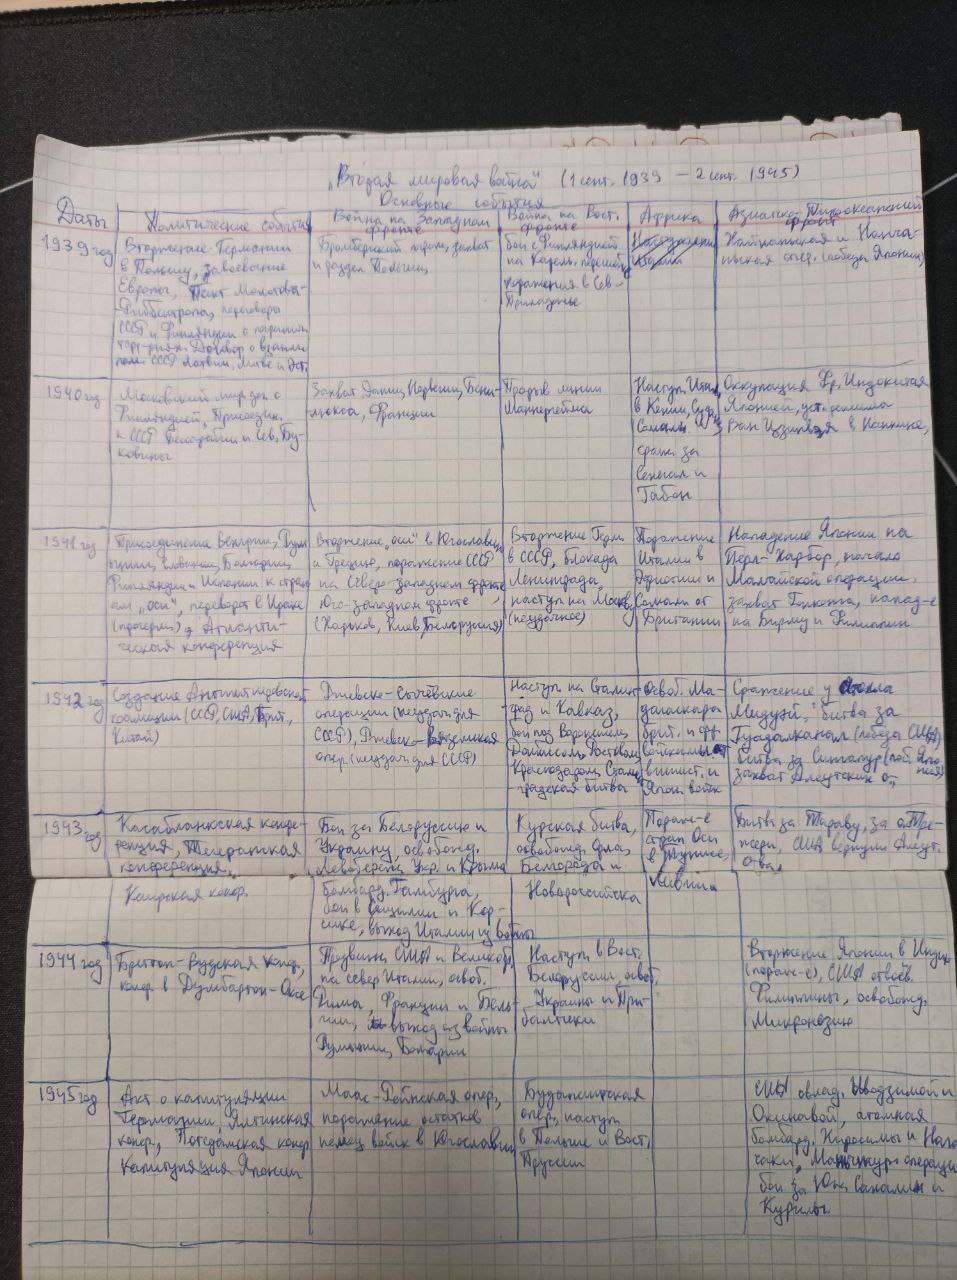 „Вторая мировая война" (1 сент. 1939 – 2 сент. 1945)
Основные события
Даты
Политические события
Война на Западном
фронте
Война на Вост.
фронте
Африка
Азиатско-Тихоокеанский
фронт
1939 год
Вторжение Германии
в Польшу, завоевание
Европы, Пакт Молотова-
Риббентропа, переговоры
СССР и Финляндии о
Договор о взаим
пом. СССР Латвии, Литве и Эст.
Бромбергский погром, захват
и раздел Польши
бои с Финляндией
на Карель. перешейке
поражения в Сев-
Приладожье
Италии
Найнаньская и
опер. (победа Японии)
1940 год
Московский мир. с
Финляндией, Присоедин.
к СССР Бессарабии и Сев. Бу-
ковины
Захват Дании, Норвегии, Бени-
люкса, Франции
Прорыв линии
Маннергейма
Наступ. Итал.
в Кении,
Сомали.
сраж. за
Сенегал и
Габон
Оккупация Фр. Индокитая
Японией, уст. режима
Ван Цзинвэя в Нанкине,
1941 год
Присоединение Венгрии, Рум
ынии, Болгарии,
Финляндии и Испании к стран
ам „оси", переворот в Ираке
Атланти-
ческая конференция
Вторжение „оси" в Югославию
и Грецию, поражение СССР
на Северо-западном фронте,
Юго-западном фронте
(Харьков, Киев, Белоруссия)
Вторжение Герм.
в СССР, блокада
Ленинграда,
наступ на Москву
(неудачное)
Поражение
Италии в
Эфиопии и
Сомали от
Британии
Нападение Японии на
Перл-Харбор, начало
Малайской операции,
захват Гонконга, напад-е
на Бирму и Филиппин
1942 год
Создание Антигитлеровской
коалиции (СССР, США, Брит.,
Китай)
Ржевско-Сычёвские
операции (неудачи для
СССР), Ржевск-Вяземская
опер. (неудач. для СССР)
Наступ на Сталин-
град и Кавказ,
бои под Воронежем,
Донбассом, Ростовом,
Краснодаром, Стали
градская битва
освоб. Ма-
дагаскара
брит. и фр.
войсками от
вишист. и
Япон войск
Сражение у атолла
Мидуэй, битва за
Гуадалканал (победа США)
битва за Сингапур
захват Алеутских о.,
1943 год
Касабланкская конфе-
ренция, Тегеранская
конференция,
Каирская конф.
Бои за Белоруссию и
Украину, освобожд.
Левобереж. Укр. и Крыма
бомбард. Гамбурга,
бои в Сицилии и Кор-
сике, выход Италии из войны
Курская битва,
освобожд. Орла,
Белгорода и
Новороссийска
Пораж-е
стран Оси
в Тунисе,
Ливии
Битвы за Тараву, за о. Тре-
жери, США вернули Алеут.
о-ва,
1944 год
Бреттон-Вудская конф,
конф в Думбартон-Оксе
США и Великобр.
на север Италии, освоб.
Рима, Франции и Бель-
гии, выход из войны
Румынии, Болгарии
Наступ в Вост.
Белоруссии, освоб.
Украины и При-
балтики
Вторжение Японии в Индию
(пораж-е), США отвоёв.
Филиппины, освобожд.
Микронезию
1945 год
Акт о капитуляции
Германии, Ялтинская
конф., Потсдамская конф
Капитуляция Японии
Маас-Рейнская опер.,
поражение остатков
немец войск в Югославии
Будапештская
опер, наступ
в Польше и Вост.
Пруссии
США овлад. Иводзимой и
Окинавой, атомная
бомбард. Хиросимы и Нага
саки, Маньчжур операция
бои за Южн Сахалин и
Курилы.